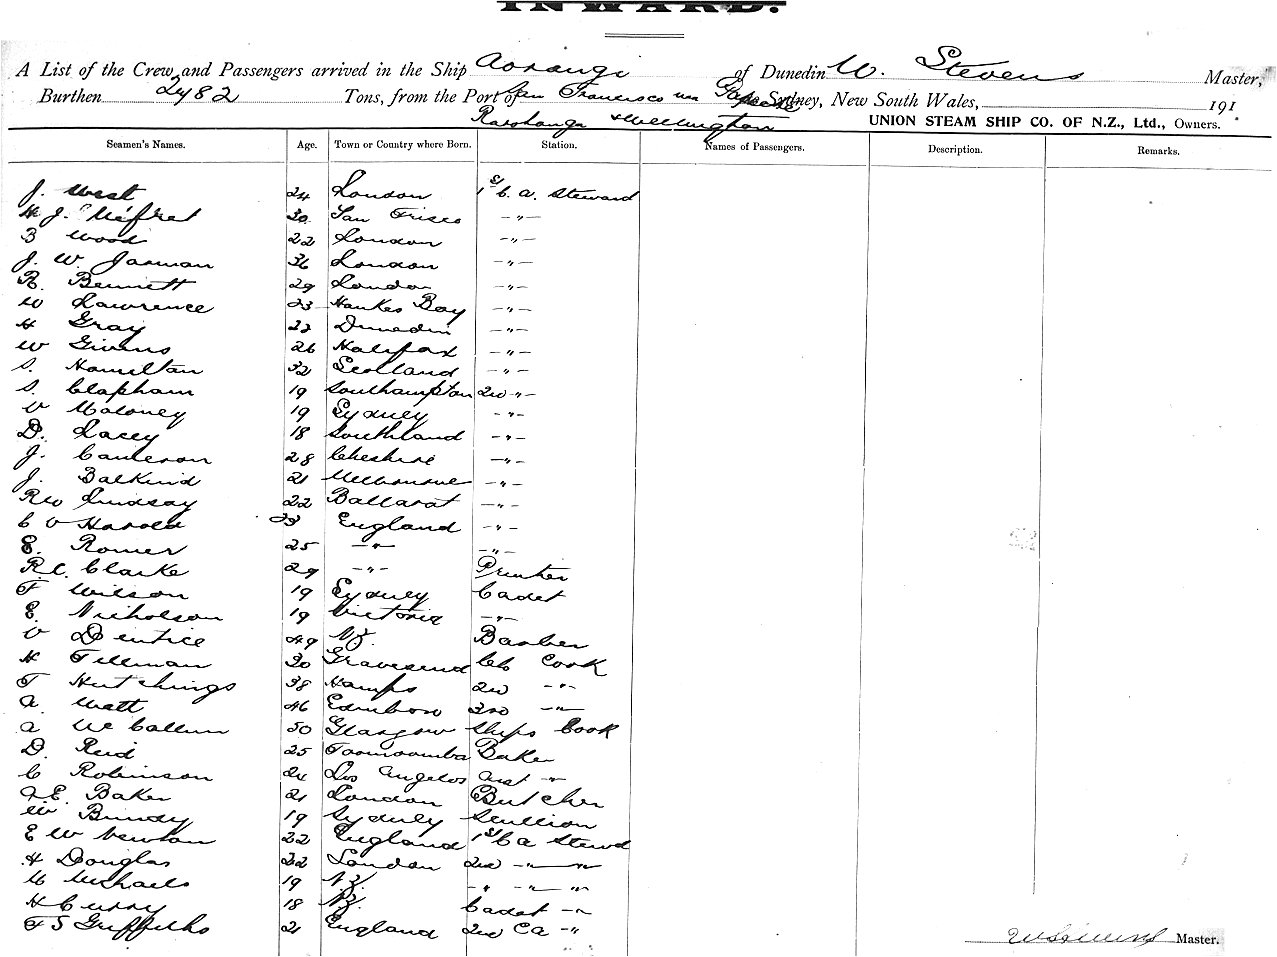 INWARD.
A List of the Crew and Passengers arrived in the Ship Aorangi of Dunedin W. Stevens Master,
Burthen 2482 Tons, from the Port of San Francisco via Papeete Sydney, New South Wales, 191
Rarotonga & Wellington UNION STEAM SHIP CO. OF N.Z., Ltd., Owners.
Seamen's Names. Age. Town or Country where Born. Station. Names of Passengers. Description. Remarks.
J. West 24 London 1st C. A. Steward
H J. 30 San Frisco -"-
B Wood 22 London -"-
J. W. Jarman 36 London -"-
R. Bennett 29 London -"-
W Lawrence 23 Hawkes Bay -"-
H Gray 22 Dunedin -"-
W Givens 26 Halifax -"-
S. Hamilton 32 Scotland -"-
S. Clapham 19 Southampton 2nd -"-
V Maloney 19 Sydney -"-
D. Lacey 18 Southland -"-
J. Cameron 28 Cheshire -"-
J. Balkind 21 Melbourne -"-
R W Lindsay 22 Ballarat -"-
C V Harold 23 England -"-
E. Romer 25 -"- -"-
R.C. Clarke 29 -"- Printer
F Wilson 19 Sydney Cadet
E. Nicholson 19 Victoria -"-
V Dentice 49 N.Z. Barber
H Tillman 30 Gravesend Ch Cook
T Hutchings 38 Hamps 2nd -"-
A. Watt 46 Edinboro 3rd -"-
A McCallum 50 Glasgow Ships Cook
D. Reid 25 Toowoomba Baker
C Robinson 24 Los Angelos Asst -"-
A E. Baker 21 London Butcher
W Bundy 19 Sydney Scullion
E W Newton 22 England 1st Ca Stewd
H Douglas 22 London 2nd -"- -"-
M Michaels 19 N.Z. -"- -"- -"-
H Curry 18 N.Z. Cadet -"-
F S Griffiths 21 England 2nd Ca -"-
W Stevens Master.